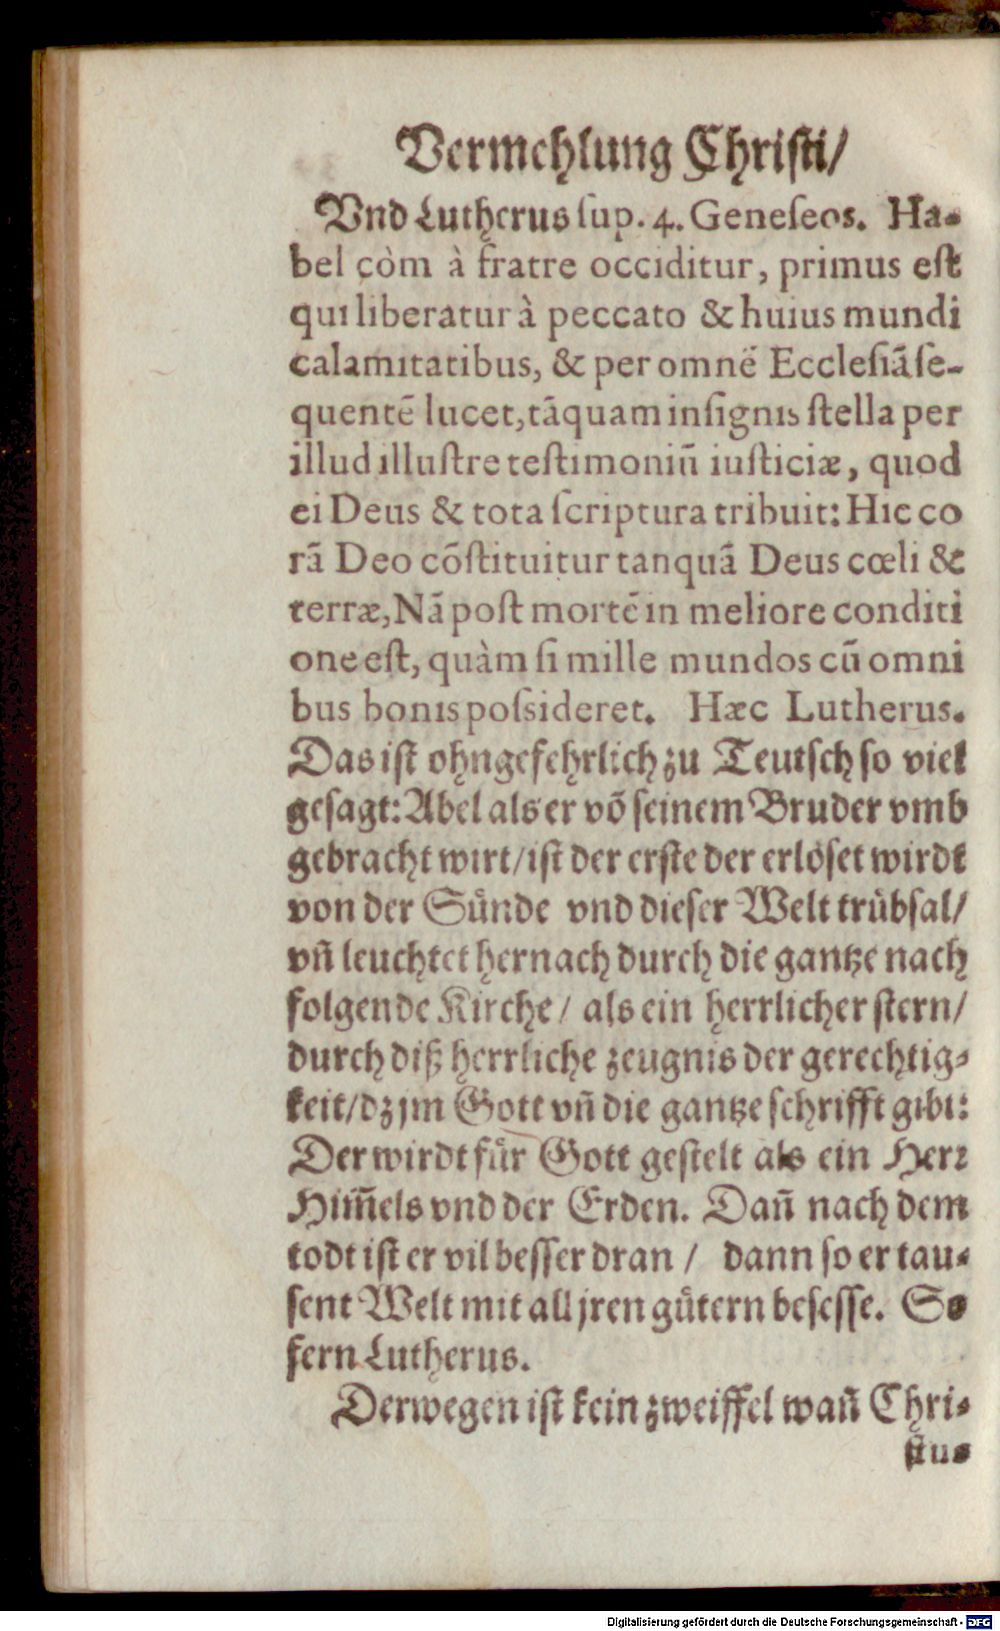 Vermehlung Christi/
Vnd Lutherus ſup. 4. Geneſeos. Ha-
bel còm à fratre occiditur, primus eſt
qui liberatur à peccato & huius mundi
calamitatibus, & per omnẽ Eccleſiã ſe-
quentẽ lucet, tãquam inſignis ſtella per
illud illuſtre teſtimoniũ iuſticiæ, quod
ei Deus & tota ſcriptura tribuit: Hic co
rã Deo cõſtituitur tanquã Deus cœli &
terræ, Nã poſt mortẽ in meliore conditi
one eſt, quàm ſi mille mundos cũ omni
bus bonis poſsideret. Hæc Lutherus.
Das iſt ohngefehrlich zu Teutſch ſo viel
geſagt: Abel als er võ ſeinem Bruder vmb
gebracht wirt/ iſt der erſte der erlöſet wirdt
von der Sünde vnd dieſer Welt trübſal/
vñ leuchtet hernach durch die gantze nach
folgende Kirche/ als ein herrlicher ſtern/
durch diß herrliche zeugnis der gerechtig-
keit/ dz jm Gott vñ die gantze ſchrifft gibt:
Der wirdt für Gott geſtelt als ein Herr
Him̃els vnd der Erden. Dañ nach dem
todt iſt er vil beſſer dran/ dann ſo er tau-
ſent Welt mit all jren gütern beſeſſe. So
fern Lutherus.
Derwegen iſt kein zweiffel wañ Chri-
ſtus
Digitalisierung gefördert durch die Deutsche Forschungsgemeinschaft - DFG